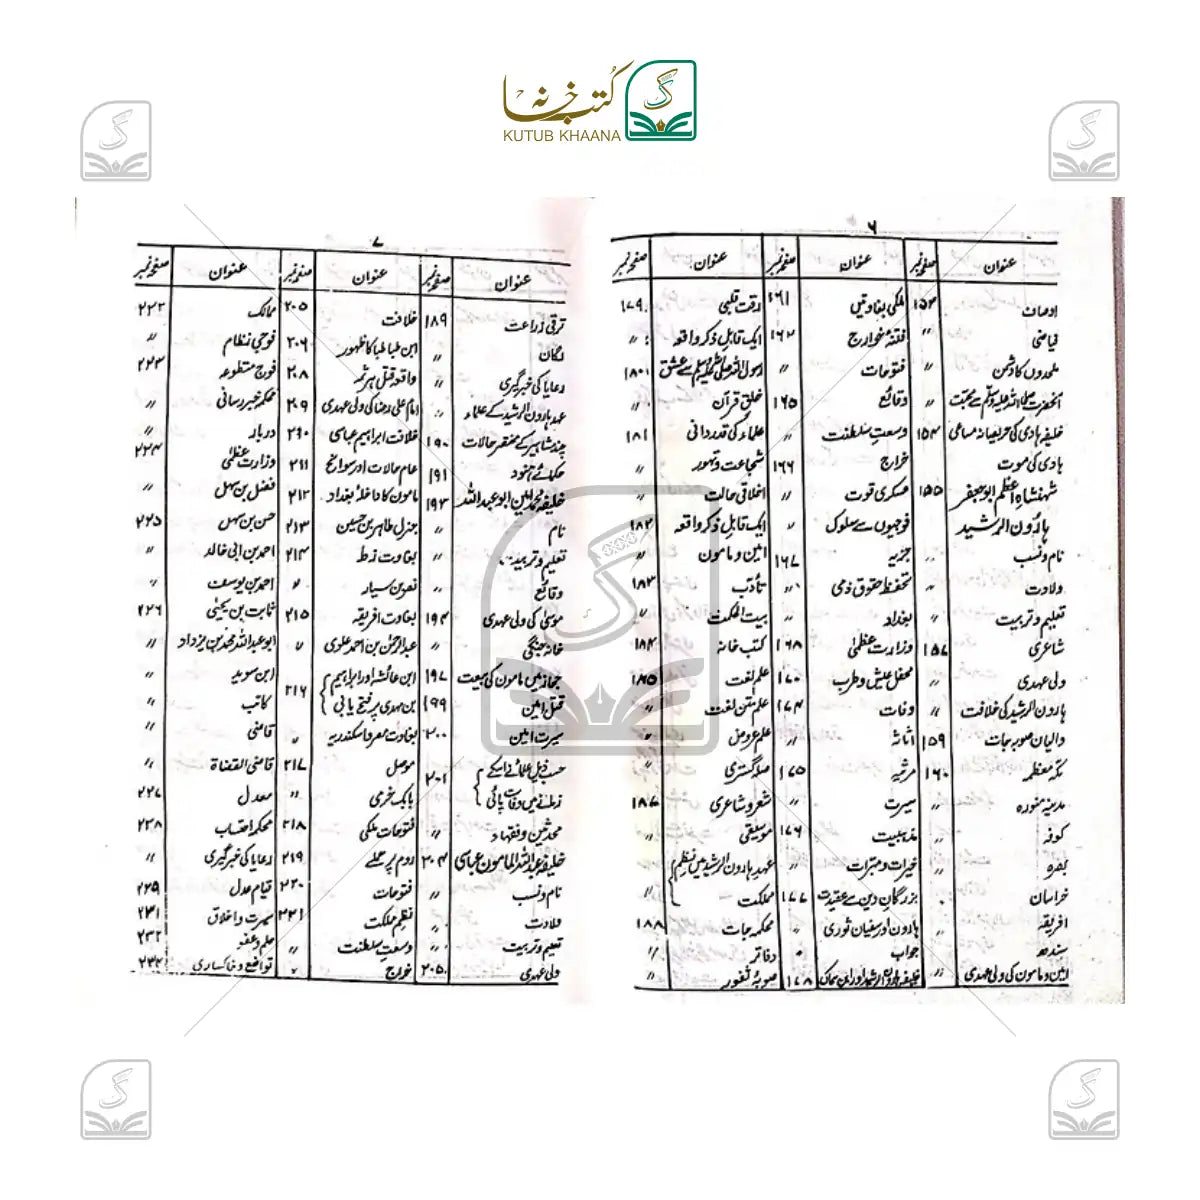 کتب خانہ
KUTUB KHAANA
۶
عنوان صفحہ نمبر عنوان صفحہ نمبر عنوان صفحہ نمبر
اوصاف ۱۵۳ ملکی بغاوتیں ۱۶۱ رقت قلبی ۱۷۹
فیاضی " فتنۂ خوارج ۱۶۲ ایک قابل ذکر واقعہ "
ملحدوں کا دشمن فتوحات " رسول اللہ صلی اللہ علیہ وسلم سے عشق ۱۸۰
آنحضرت صلی اللہ علیہ وسلم سے محبت " وقائع ۱۶۵ خلق قرآن "
خلیفہ ہادی کی حریصانہ مساعی ۱۵۴ وسعت سلطنت " علماء کی قدردانی ۱۸۱
ہادی کی موت خراج ۱۶۶ شجاعت و تہور "
شہنشاہ اعظم ابو جعفر ۱۵۵ عسکری قوت " اخلاقی حالت "
ہارون الرشید فوجیوں سے سلوک " ایک قابل ذکر واقعہ ۱۸۲
نام و نسب جزیہ ۱۶۷ امین و مامون "
ولادت " تحفظ حقوق ذمی " تأدب ۱۸۳
تعلیم و تربیت بغداد بیت الحکمت "
شاعری ۱۵۷ وزارت عظمیٰ ۱۶۸ کتب خانہ ۱۸۴
ولی عہدی " محفل عیش و طرب ۱۷۰ علم لغت ۱۸۵
ہارون الرشید کی خلافت " وفات ۱۷۴ علم متن لغت "
والیان صوبہ جات ۱۵۹ اثاثہ " علم عروض "
مکہ معظمہ ۱۶۰ مرثیہ ۱۷۵ صلہ گستری "
مدینہ منورہ " سیرت " شعر و شاعری ۱۸۷
کوفہ " مذہبیت ۱۷۶ موسیقی "
بصرہ " خیرات و مبرات " عہد ہارون الرشید میں نظم
خراسان بزرگان دین سے عقیدت ۱۷۷ مملکت "
افریقہ " ہارون اور سفیان ثوری " محکمہ جات ۱۸۸
سندھ جواب دفاتر "
امین و مامون کی ولی عہدی " خلیفہ ہارون الرشید اور ابن سماک ۱۷۸ صوبۂ ثغور "
۷
عنوان صفحہ نمبر عنوان صفحہ نمبر عنوان صفحہ نمبر
ترقی زراعت ۱۸۹ خلافت ۲۰۵ ممالک ۲۲۲
لگان " ابن طباطبا کا ظہور ۲۰۶ فوجی نظام "
رعایا کی خبر گیری " واقعہ قتل ہرثمہ ۲۰۸ فوج متطوعہ ۲۲۳
عہد ہارون الرشید کے علماء " امام علی رضا کی ولی عہدی ۲۰۹ محکمہ خبر رسانی "
چند مشاہیر کے مختصر حالات ۱۹۰ خلافت ابراہیم عباسی ۲۹۰ دربار "
حکمائے ہنود ۱۹۱ عام حالات اور سوانح ۲۱۱ وزارت عظمیٰ ۲۲۴
خلیفہ محمد امین ابو عبداللہ ۱۹۳ مامون کا داخلہ بغداد ۲۱۲ فضل بن سہل "
نام جنرل طاہر بن حسین ۲۱۳ حسن بن سہل ۲۲۵
تعلیم و تربیت " بغاوت زط ۲۱۴ احمد بن ابی خالد "
وقائع نصر بن سیار " احمد بن یوسف "
موسیٰ کی ولی عہدی ۱۹۴ بغاوت افریقہ ۲۱۵ ثابت بن یحییٰ ۲۲۶
خانہ جنگی " عبدالرحمٰن بن احمد علوی " ابو عبداللہ محمد بن یزداد "
حجاز میں مامون کی بیعت ۱۹۷ ابن عائشہ اور ابراہیم ۲۱۶ ابن سوید "
قتل امین ۱۹۹ بن مہدی پر فتح یابی کاتب "
سیرت امین ۲۰۰ بغاوت مصر و اسکندریہ " قاضی "
حسب ذیل علمائے ان کے ۲۰۱ موصل ۲۱۷ قاضی القضاۃ "
زمانے میں وفات پائی بابک خرمی " معدل ۲۲۷
محدثین و فقہاء " فتوحات ملکی ۲۱۸ محکمہ احتساب ۲۲۸
خلیفہ عبداللہ المامون عباسی ۲۰۴ روم پر حملے ۲۱۹ رعایا کی خبر گیری "
نام و نسب " فتوحات ۲۲۰ قیام عدل ۲۲۹
ولادت " نظم مملکت ۲۲۱ سیرت و اخلاق ۲۳۱
تعلیم و تربیت " وسعت سلطنت " حلم و عفو ۲۳۲
ولی عہدی ۲۰۵ خراج " تواضع و خاکساری ۲۳۳